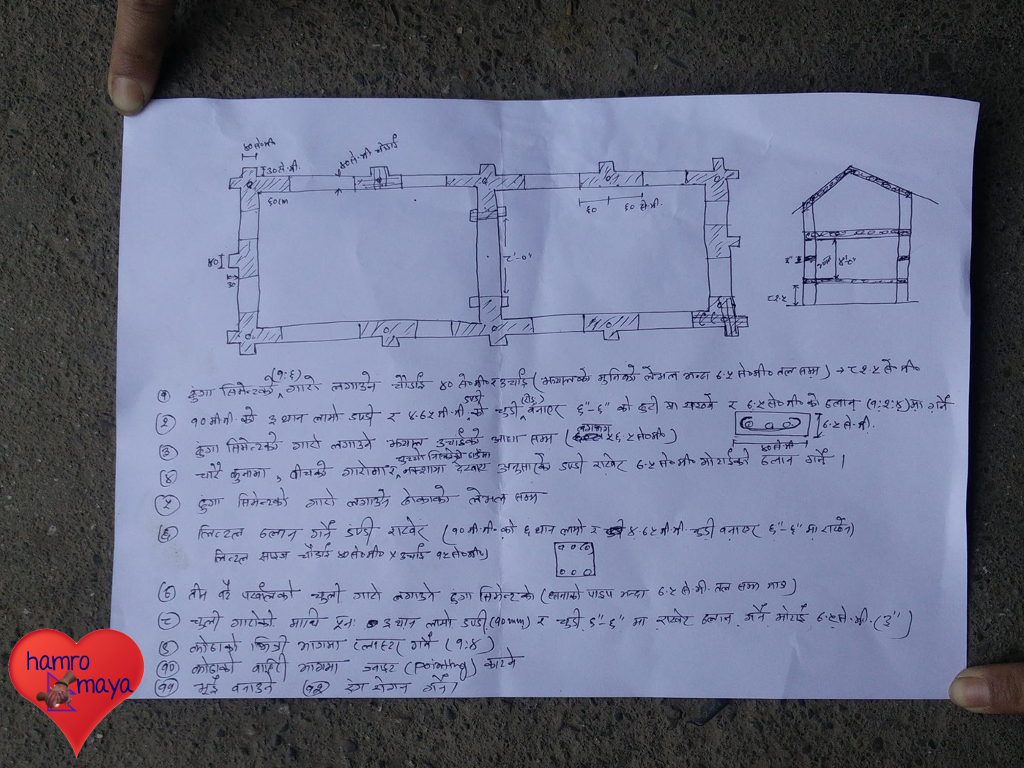 ४० से०मी०
३० से.मी.
४० से.मी चौडाई
६० cm
६०
६० से.मी.
४०
३०
८'-०"
① ढुंगा सिमेन्टको (१:६) गारो लगाउने चौडाई ४० से०मी० र उचाई (झ्यालको मुनिको लेभल भन्दा ७.५ से०मी० तल सम्म) → ८२.५ से०मी०
② १० मी.मी. को ३ थान लामो डण्डी र ४.७५ मी.मी. को डण्डी चुडी (रिङ) बनाएर ६"-६" को दुरी मा राख्ने र ७.५ से०मी० को ढलान (१:२:४) मा गर्ने
③ ढुंगा सिमेन्टको गारो लगाउने झ्याल उचाईको आधा सम्म
७.५ से.मी.
४० से.मी
④ चारै कुनामा, बीचको गारोमा र नक्शामा देखाए अनुसारको डण्डी राखेर ७.५ से०मी० मोटाईको ढलान गर्ने।
⑤ ढुंगा सिमेन्टको गारो लगाउने ढोकाको लेभल सम्म
⑥ लिन्टल ढलान गर्ने डण्डी राखेर (१० मी.मी. को ६ थान लामो र ४.७५ मी.मी चुडी बनाएर ६"-६" मा राख्ने)
लिन्टल साइज चौडाई ४० से०मी० × उचाई १५ से०मी०)
⑦ तीन वटै पर्खालको चुली गारो लगाउने ढुंगा सिमेन्टको (छानाको पाइप भन्दा ७.५ से.मी. तल सम्म मात्र)
⑧ चुली गारोको माथि पुनः ३ थान लामो डण्डी (१० mm) र चुडी ६"-६" मा राखेर ढलान गर्ने मोटाई ७.५ से.मी. (३")
⑨ कोठाको भित्री भागमा प्लास्टर गर्ने (१:४)
⑩ कोठाको बाहिरी भागमा ज्वाइन्ट (pointing) काट्ने
⑪ भूई बनाउने ⑫ रंग रोगन गर्ने।
hamro
maya